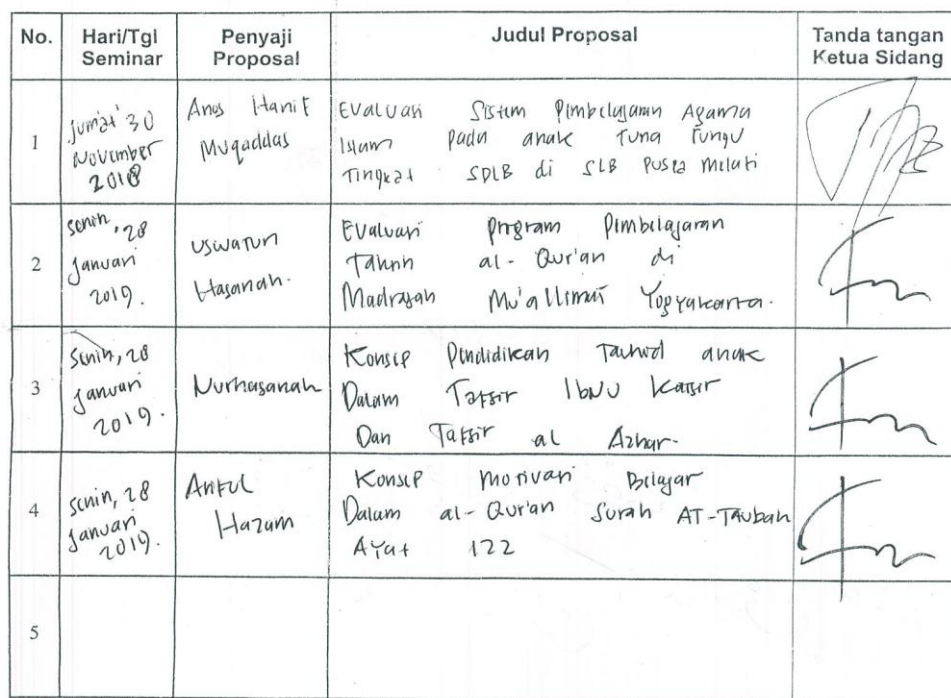 No. Hari/Tgl Seminar Penyaji Proposal Judul Proposal Tanda tangan Ketua Sidang
1
Jum'at 30
November
2018
Anas Hanif
Muqaddas
Evaluasi Sistem Pembelajaran Agama
Islam pada anak Tuna Rungu
Tingkat SDLB di SLB Puspa Melati
2
Senin, 28
Januari
2019.
Uswatun
Hasanah.
Evaluasi Program Pembelajaran
Tahsin al-Qur'an di
Madrasah Mu'allimat Yogyakarta.
3
Senin, 28
Januari
2019.
Nurhasanah
Konsep Pendidikan Tauhid anak
Dalam Tafsir Ibnu Katsir
Dan Tafsir al Azhar.
4
Senin, 28
Januari
2019.
Hazam
Konsep Motivasi Belajar
Dalam al-Qur'an Surah AT-Taubah
Ayat 122
5